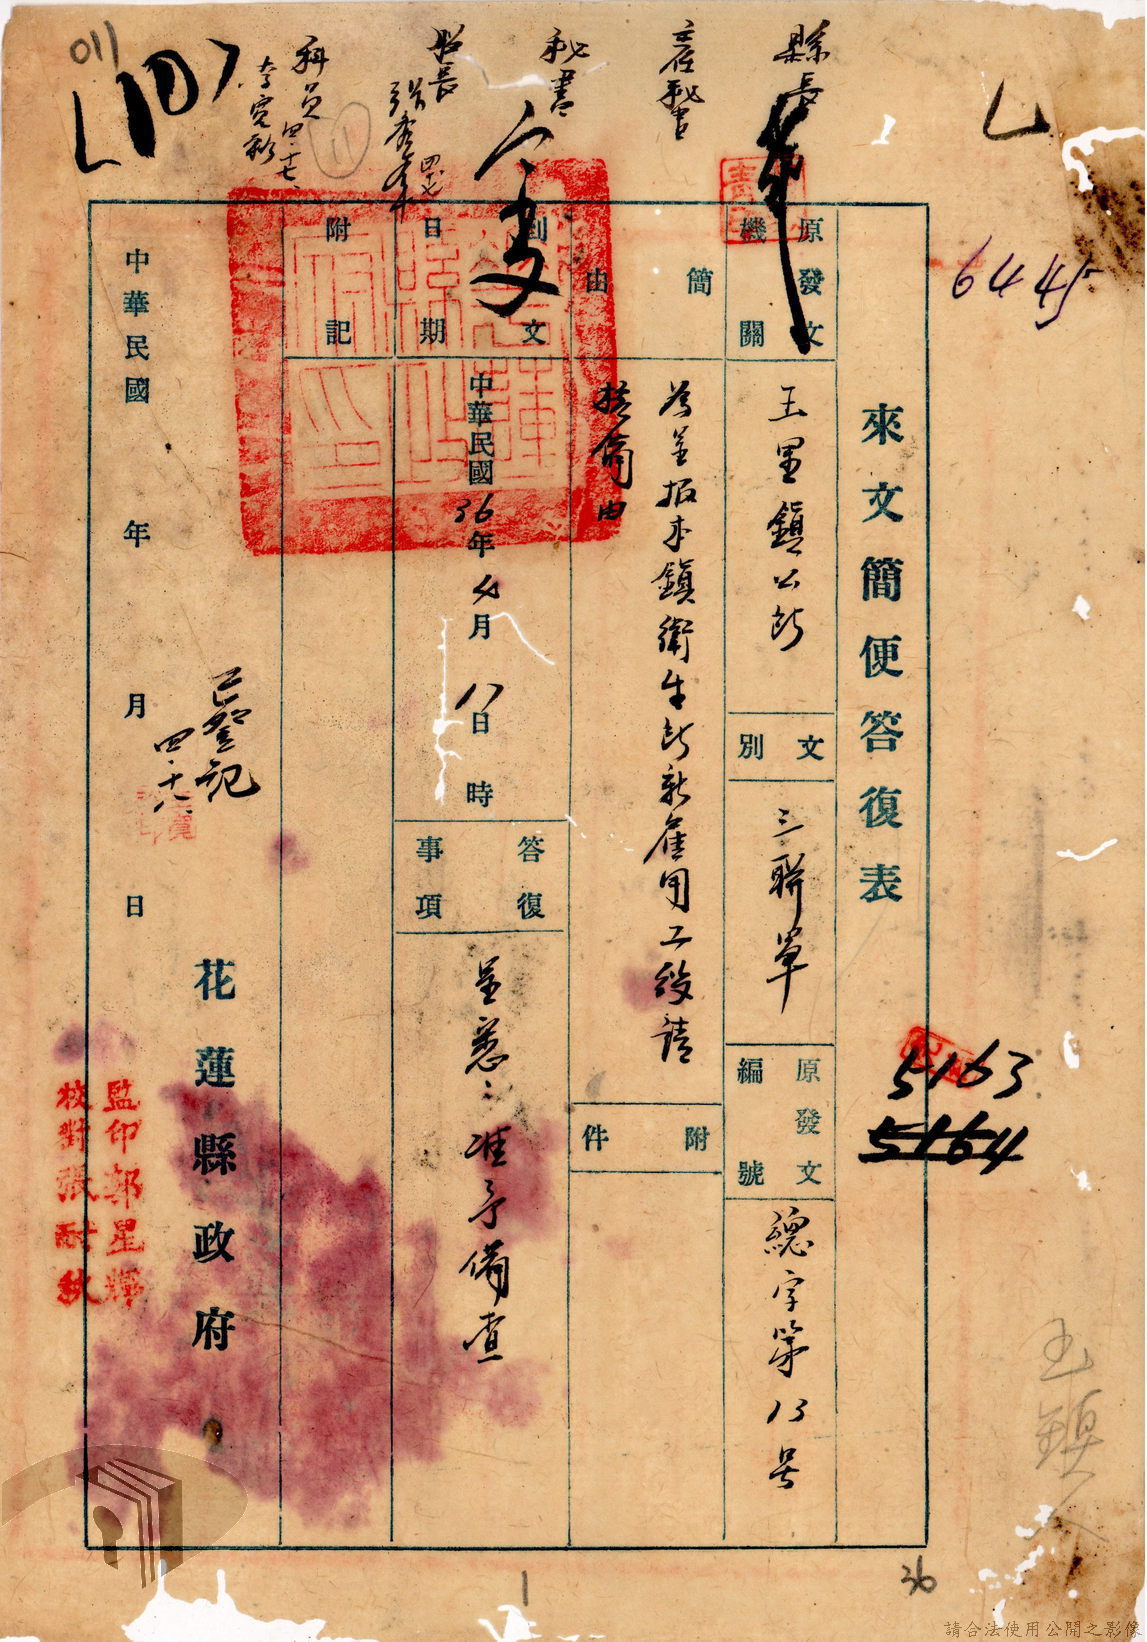 011
107
6445
縣長
秘書
科員
四.十七.
來文簡便答復表
原發文機關
玉里鎮公所
文別
三聯單
原發文編號
總字第13号
簡由
為呈報本鎮衛生所新雇用工役請
核備由
附件
到文日期
中華民國36年4月8日時
答復事項
呈悉:准予備查
附記
花蓮縣政府
中華民國 年 月 日
已登記
四.十八
監印郭星輝
校對張耐秋
5163
5164
玉鎮人
36
1
請合法使用公開之影像